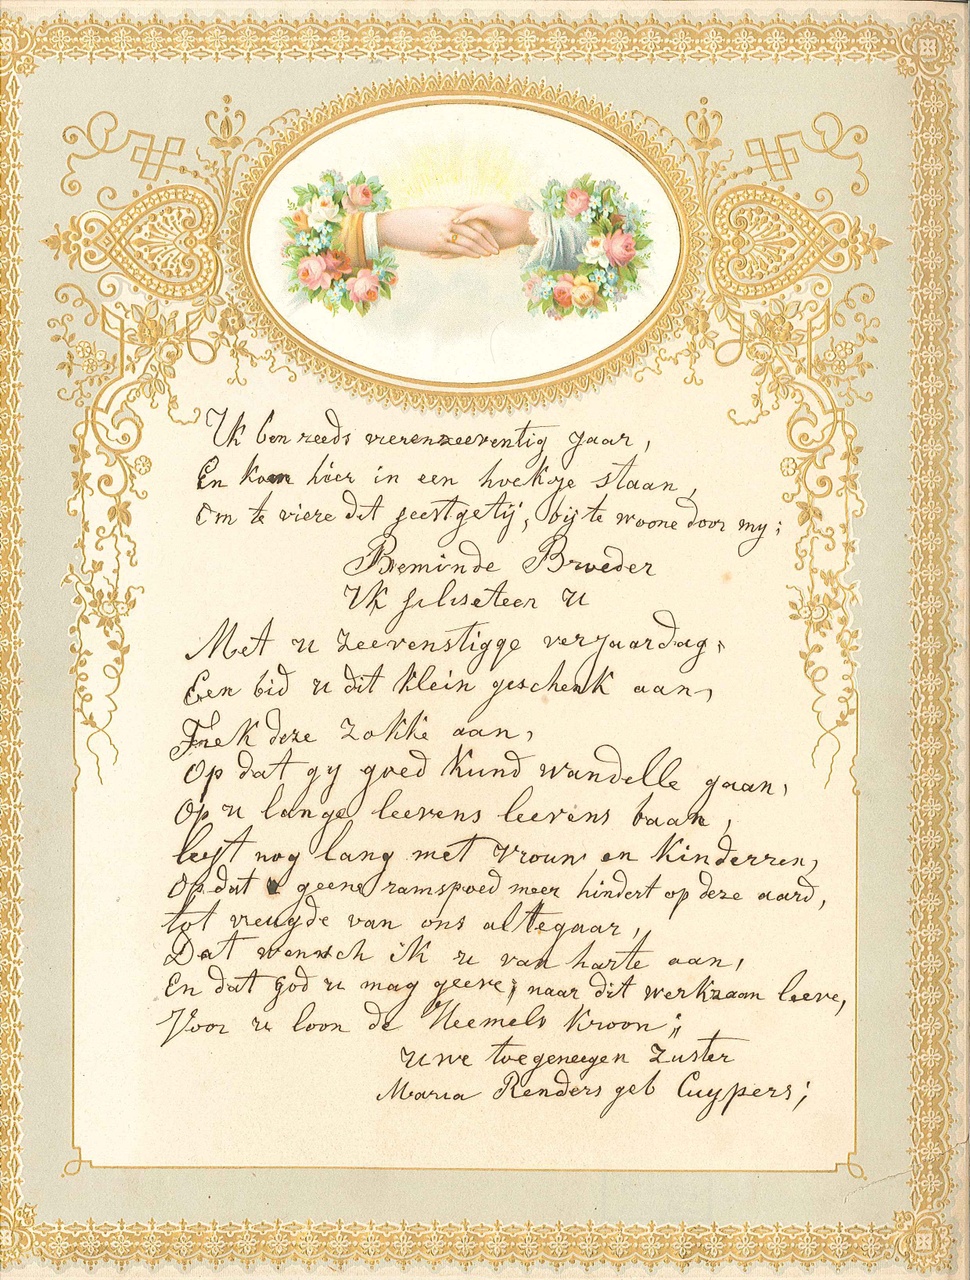 Ik ben reeds vierenzeeventig jaar,
En kom hier in een hoekje staan,
Om te viere dit feestgetij, bij te woone door my;
Beminde Broeder
Ik feliseteer u
Met u zeevenstigge verjaardag,
Een bid u dit klein geschenk aan,
Trek deze zokke aan,
Op dat gy goed kund wandelle gaan,
Op u lange leevens leevens baan,
leeft nog lang met vrouw en kinderren,
Op dat geene ramspoed meer hindert op deze aard,
tot vreugde van ons altegaar,,
Dat wensch ik u van harte aan,
En dat God u mag geeve; naar dit werkzaan leeve,
Voor u loon de Heemels kroon;,
uwe toegeneegen Zuster
Maria Renders geb Cuypers;